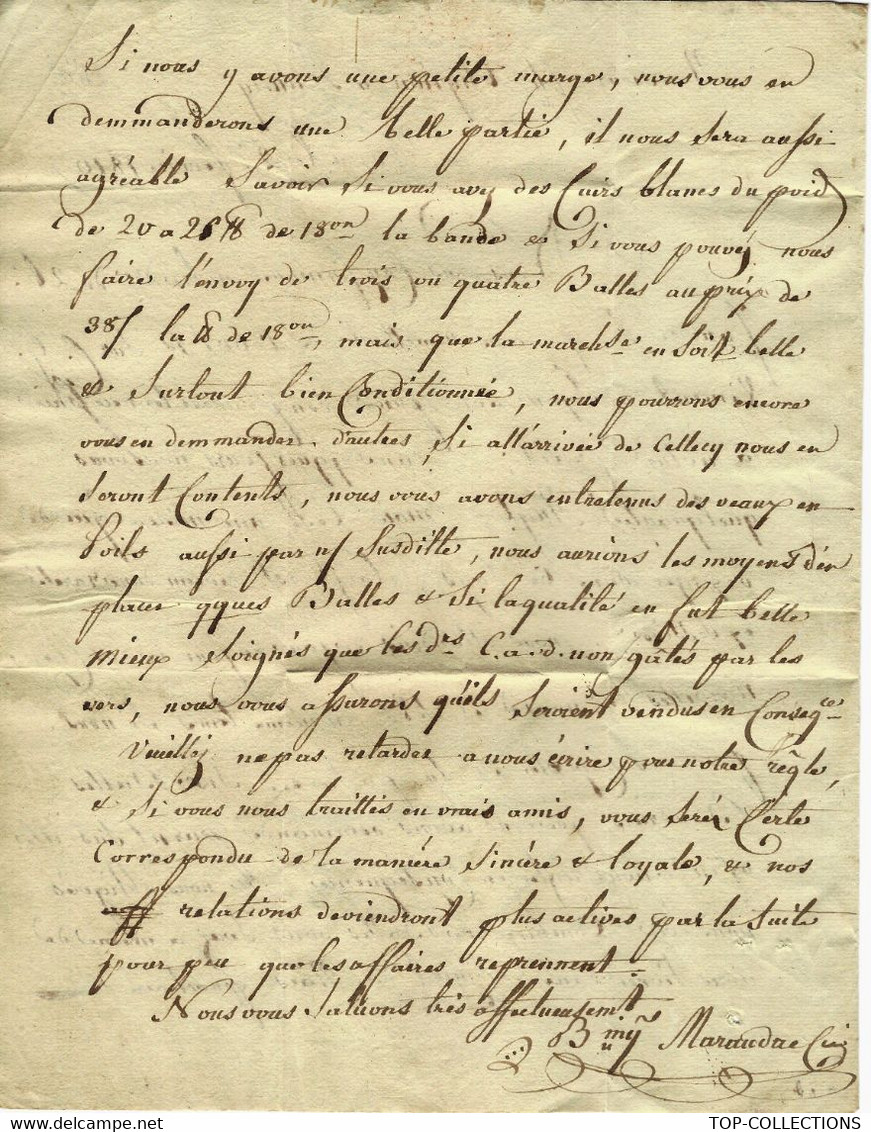 Si nous y avons une petite marge, nous vous en
demmanderons une belle partie, il nous sera aussi
agréable Savoir Si vous avez des Cuirs blancs du poid
de 20 a 25 ℔ de 18on la bande & Si vous pouvez nous
faire l'envoy de trois ou quatre Balles au prix de
38f la ℔ de 18on, mais que la marchse en Soit belle
& Surtout bien Conditionnée, nous pourrons encore
vous en demmander d'autres, Si a l'arrivée de Cellecy nous en
Seront Contents, nous vous avons entretenus des veaux en
Poils aussi par n/ Susditte, nous aurions les moyens d'en
placer qques Balles & Si la qualité en fut belle
mieux Soignés que les drs C.a.d. non gâtés par les
vers, nous vous assurons qu'ils Seroient vendus en Conseqce
Veuillez ne pas retarder a nous écrire pour notre règle,
& Si vous nous traittés en vrais amis, vous Seréz Certe
Correspondu de la manière Sincère & loyale, & nos
aff relations deviendront plus actives par la Suite
pour peu que les affaires reprennent.
Nous vous Saluons très affectueusemt
Bmy Maraudac
TOP-COLLECTIONS